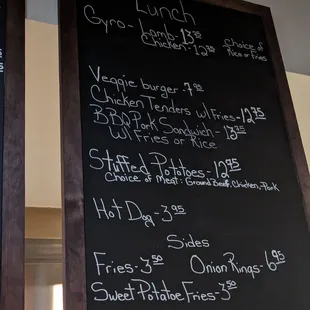 Lunch
Gyro - Lamb - 13.25
Chicken - 12.50
Choice of
Rice or Fries
Veggie burger - 7.95
Chicken Tenders w/ Fries - 12.75
BBQ Pork Sandwich - 13.25
w/ Fries or Rice
Stuffed Potatoes - 12.95
Choice of Meat: Ground Beef, Chicken, Pork
Hot Dog - 3.95
Sides
Fries - 3.50
Onion Rings - 6.95
Sweet Potatoe Fries - 3.50